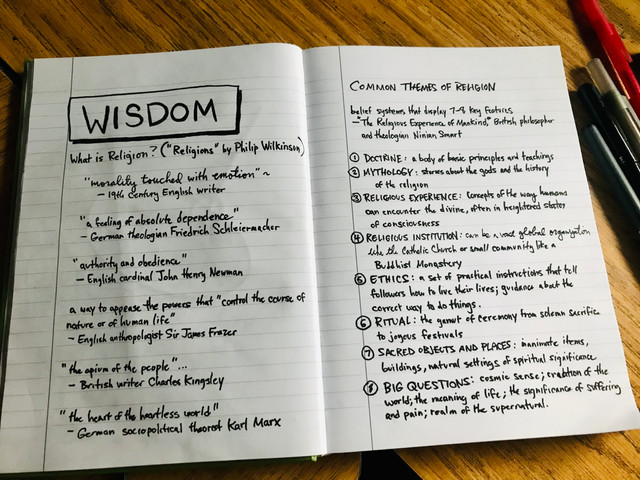 WISDOM
What is Religion? ("Religions" by Philip Wilkinson)
"morality touched with emotion" ~
- 19th Century English writer
"a feeling of absolute dependence"
- German theologian Friedrich Schleiermacher
"authority and obedience"
- English cardinal John Henry Newman
a way to appease the powers that "control the course of
nature or of human life"
- English anthropologist Sir James Frazer
"the opium of the people"...
- British writer Charles Kingsley
"the heart of the heartless world"
- German sociopolitical theorist Karl Marx
COMMON THEMES OF RELIGION
belief systems that display 7-8 key features
- "The Religious Experience of Mankind," British philosopher
and theologian Ninian Smart
① DOCTRINE: a body of basic principles and teachings
② MYTHOLOGY: stories about the gods and the history
of the religion
③ RELIGIOUS EXPERIENCE: Concepts of the way humans
can encounter the divine, often in heightened states
of consciousness
④ RELIGIOUS INSTITUTION: can be a vast global organization
like the Catholic Church or small community like a
Buddhist Monastery
⑤ ETHICS: a set of practical instructions that tell
followers how to live their lives; guidance about the
correct way to do things.
⑥ RITUAL: the gamut of ceremony from solemn sacrifice
to joyous festivals
⑦ SACRED OBJECTS AND PLACES: inanimate items,
buildings, natural settings of spiritual significance
⑧ BIG QUESTIONS: cosmic sense; creation of the
world; the meaning of life; the significance of suffering
and pain; realm of the supernatural.